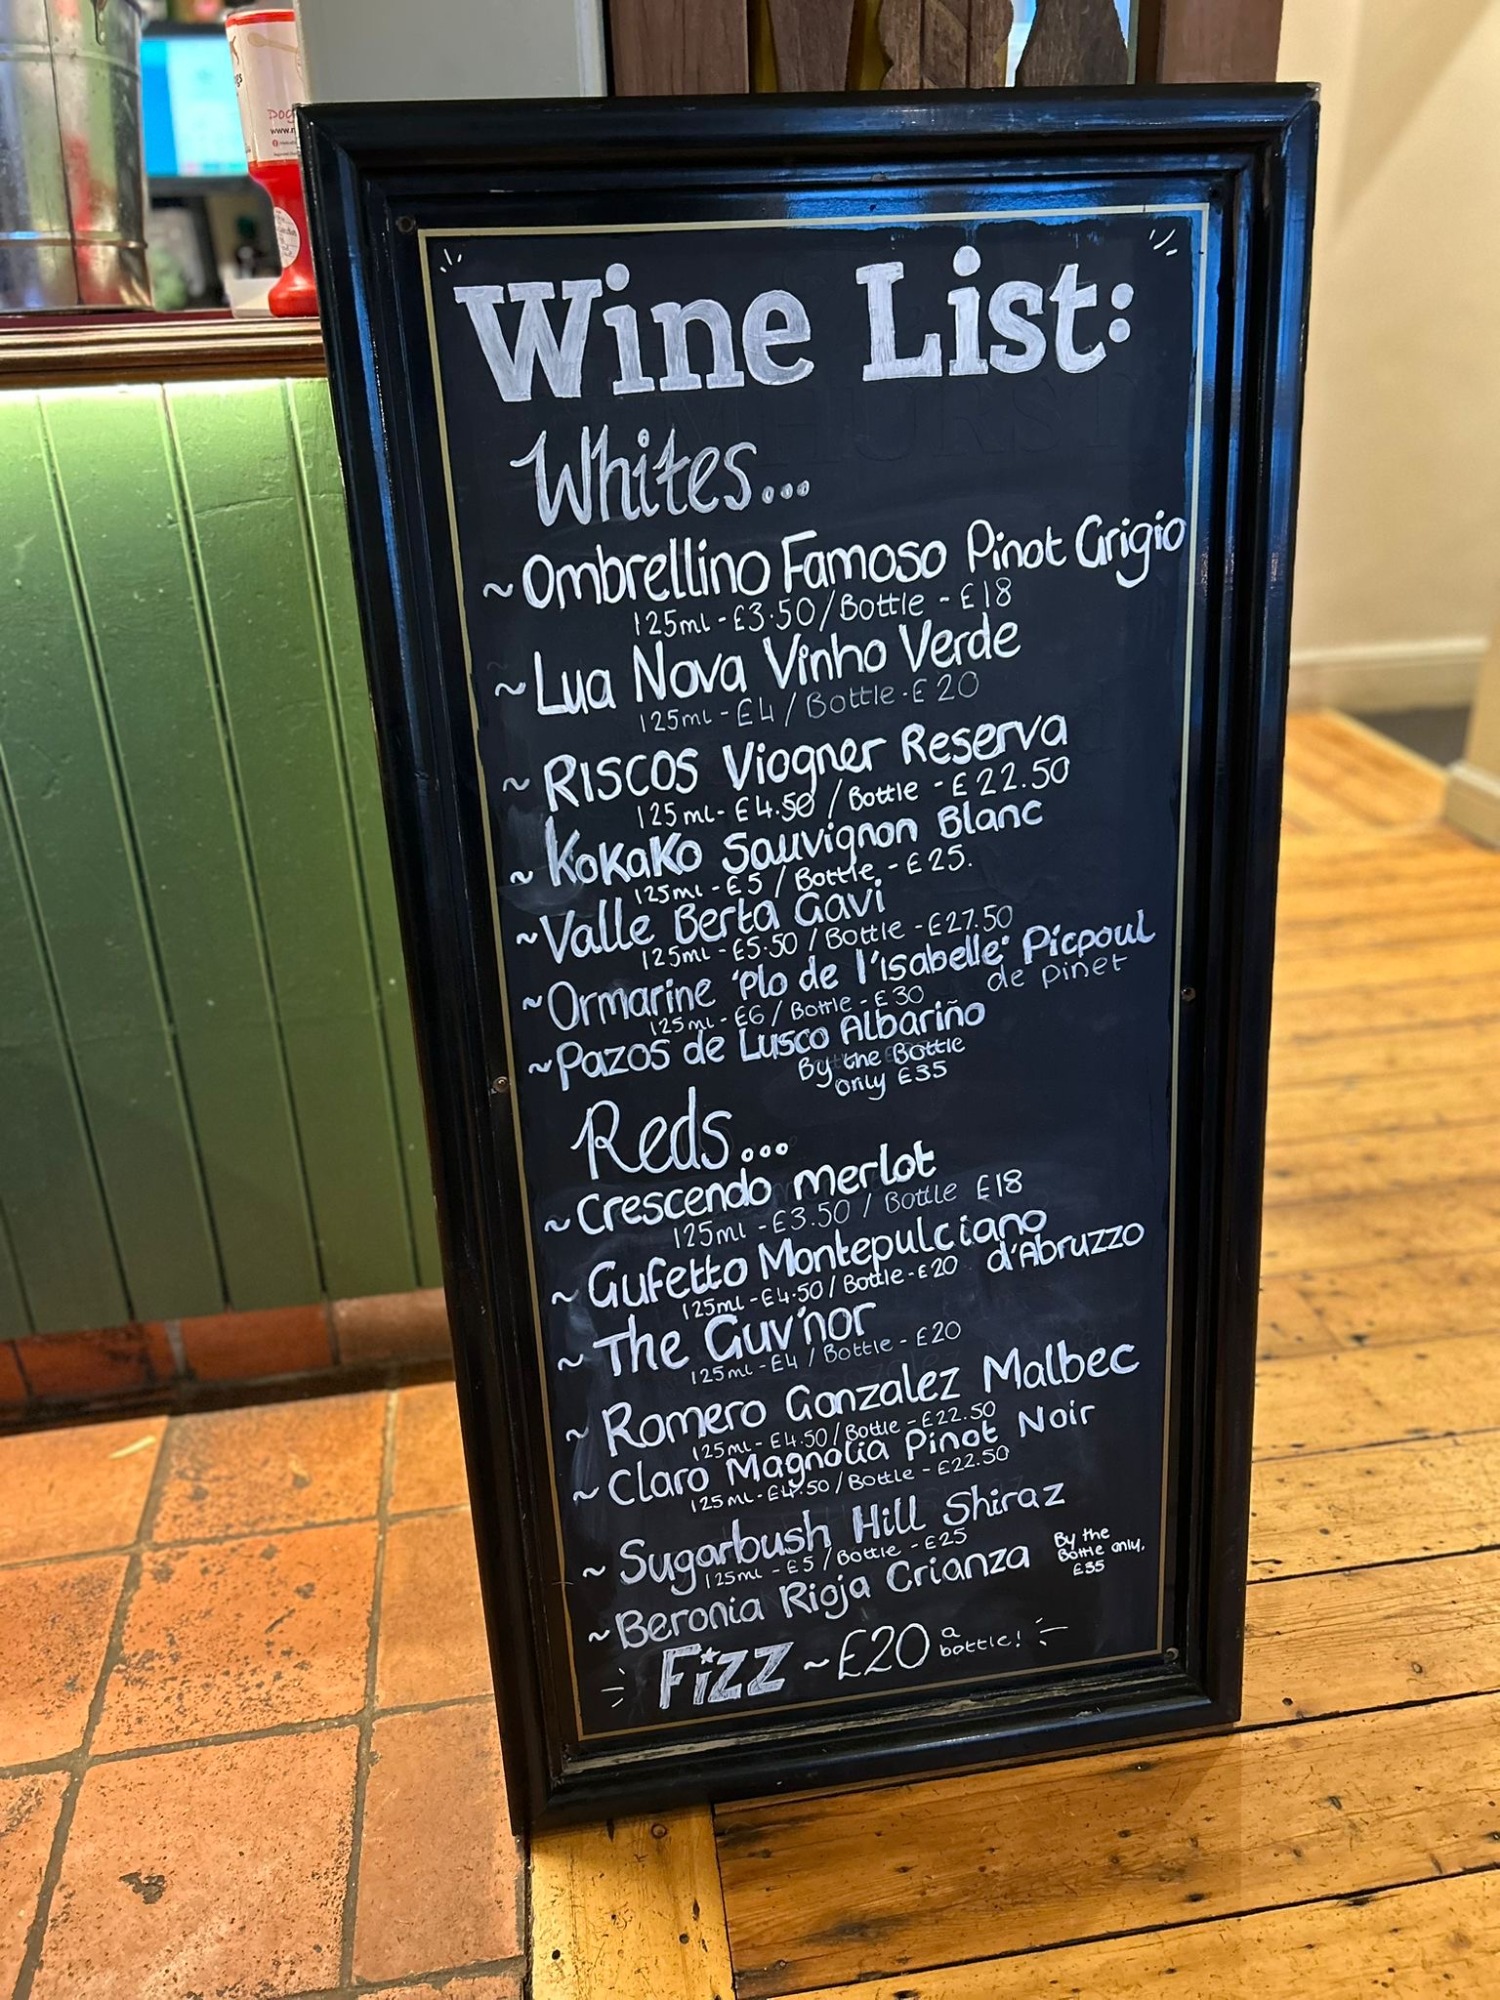 Wine List:
Whites...
~ Ombrellino Famoso Pinot Grigio
125ml - £3.50 / Bottle - £18
~ Lua Nova Vinho Verde
125ml - £4 / Bottle - £20
~ RISCOS Viogner Reserva
125ml - £4.50 / Bottle - £22.50
~ KoKaKo Sauvignon Blanc
125ml - £5 / Bottle - £25.
~ Valle Berta Gavi
125ml - £5.50 / Bottle - £27.50
~ Ormarine 'Plo de l'isabelle' Picpoul
de pinet
125ml - £6 / Bottle - £30
~ Pazos de Lusco Albariño
By the Bottle
only £35
Reds...
~ Crescendo merlot
125ml - £3.50 / Bottle £18
~ Gufetto Montepulciano
d'Abruzzo
125ml - £4.50 / Bottle - £20
~ The Guv'nor
125ml - £4 / Bottle - £20
~ Romero Gonzalez Malbec
125ml - £4.50 / Bottle - £22.50
~ Claro Magnolia Pinot Noir
125ml - £4.50 / Bottle - £22.50
~ Sugarbush Hill Shiraz
125ml - £5 / Bottle - £25
~ Beronia Rioja Crianza
By the
Bottle only.
£35
Fizz ~ £20 a
bottle!